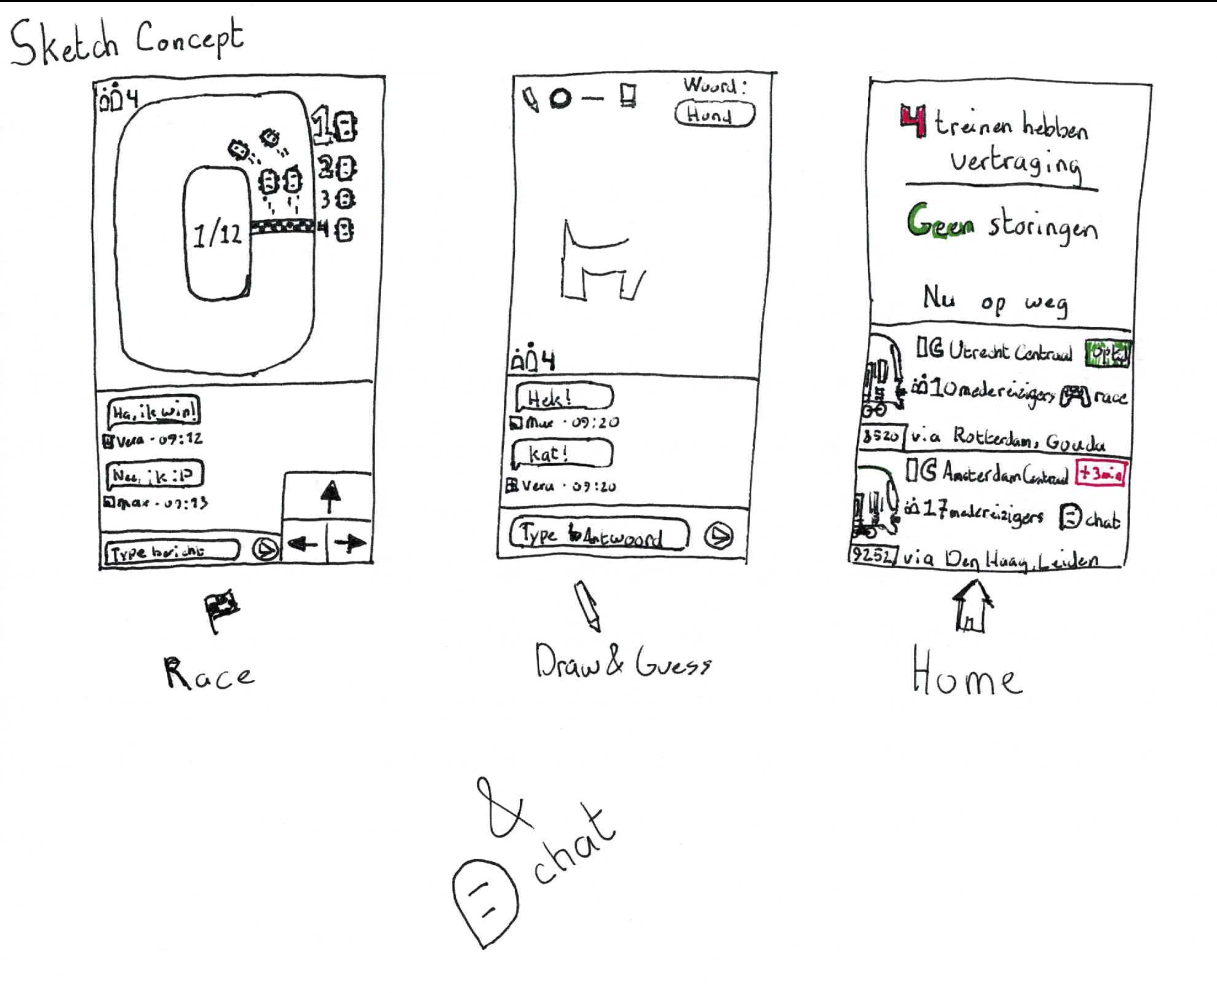 Sketch Concept
4
1
2
3
4
1/12
Ha, ik win!
Vera · 09:12
Nee, ik :P
max · 09:13
Type bericht
Race
Woord:
Hond
4
Hek!
Max · 09:20
Kat!
Vera · 09:20
Type Antwoord
Draw & Guess
4 treinen hebben
vertraging
Geen storingen
Nu op weg
IC Utrecht Centraal
10 medereizigers race
8520 via Rotterdam, Gouda
IC Amsterdam Centraal +3min
17 medereizigers chat
9252 via Den Haag, Leiden
Home
&
chat